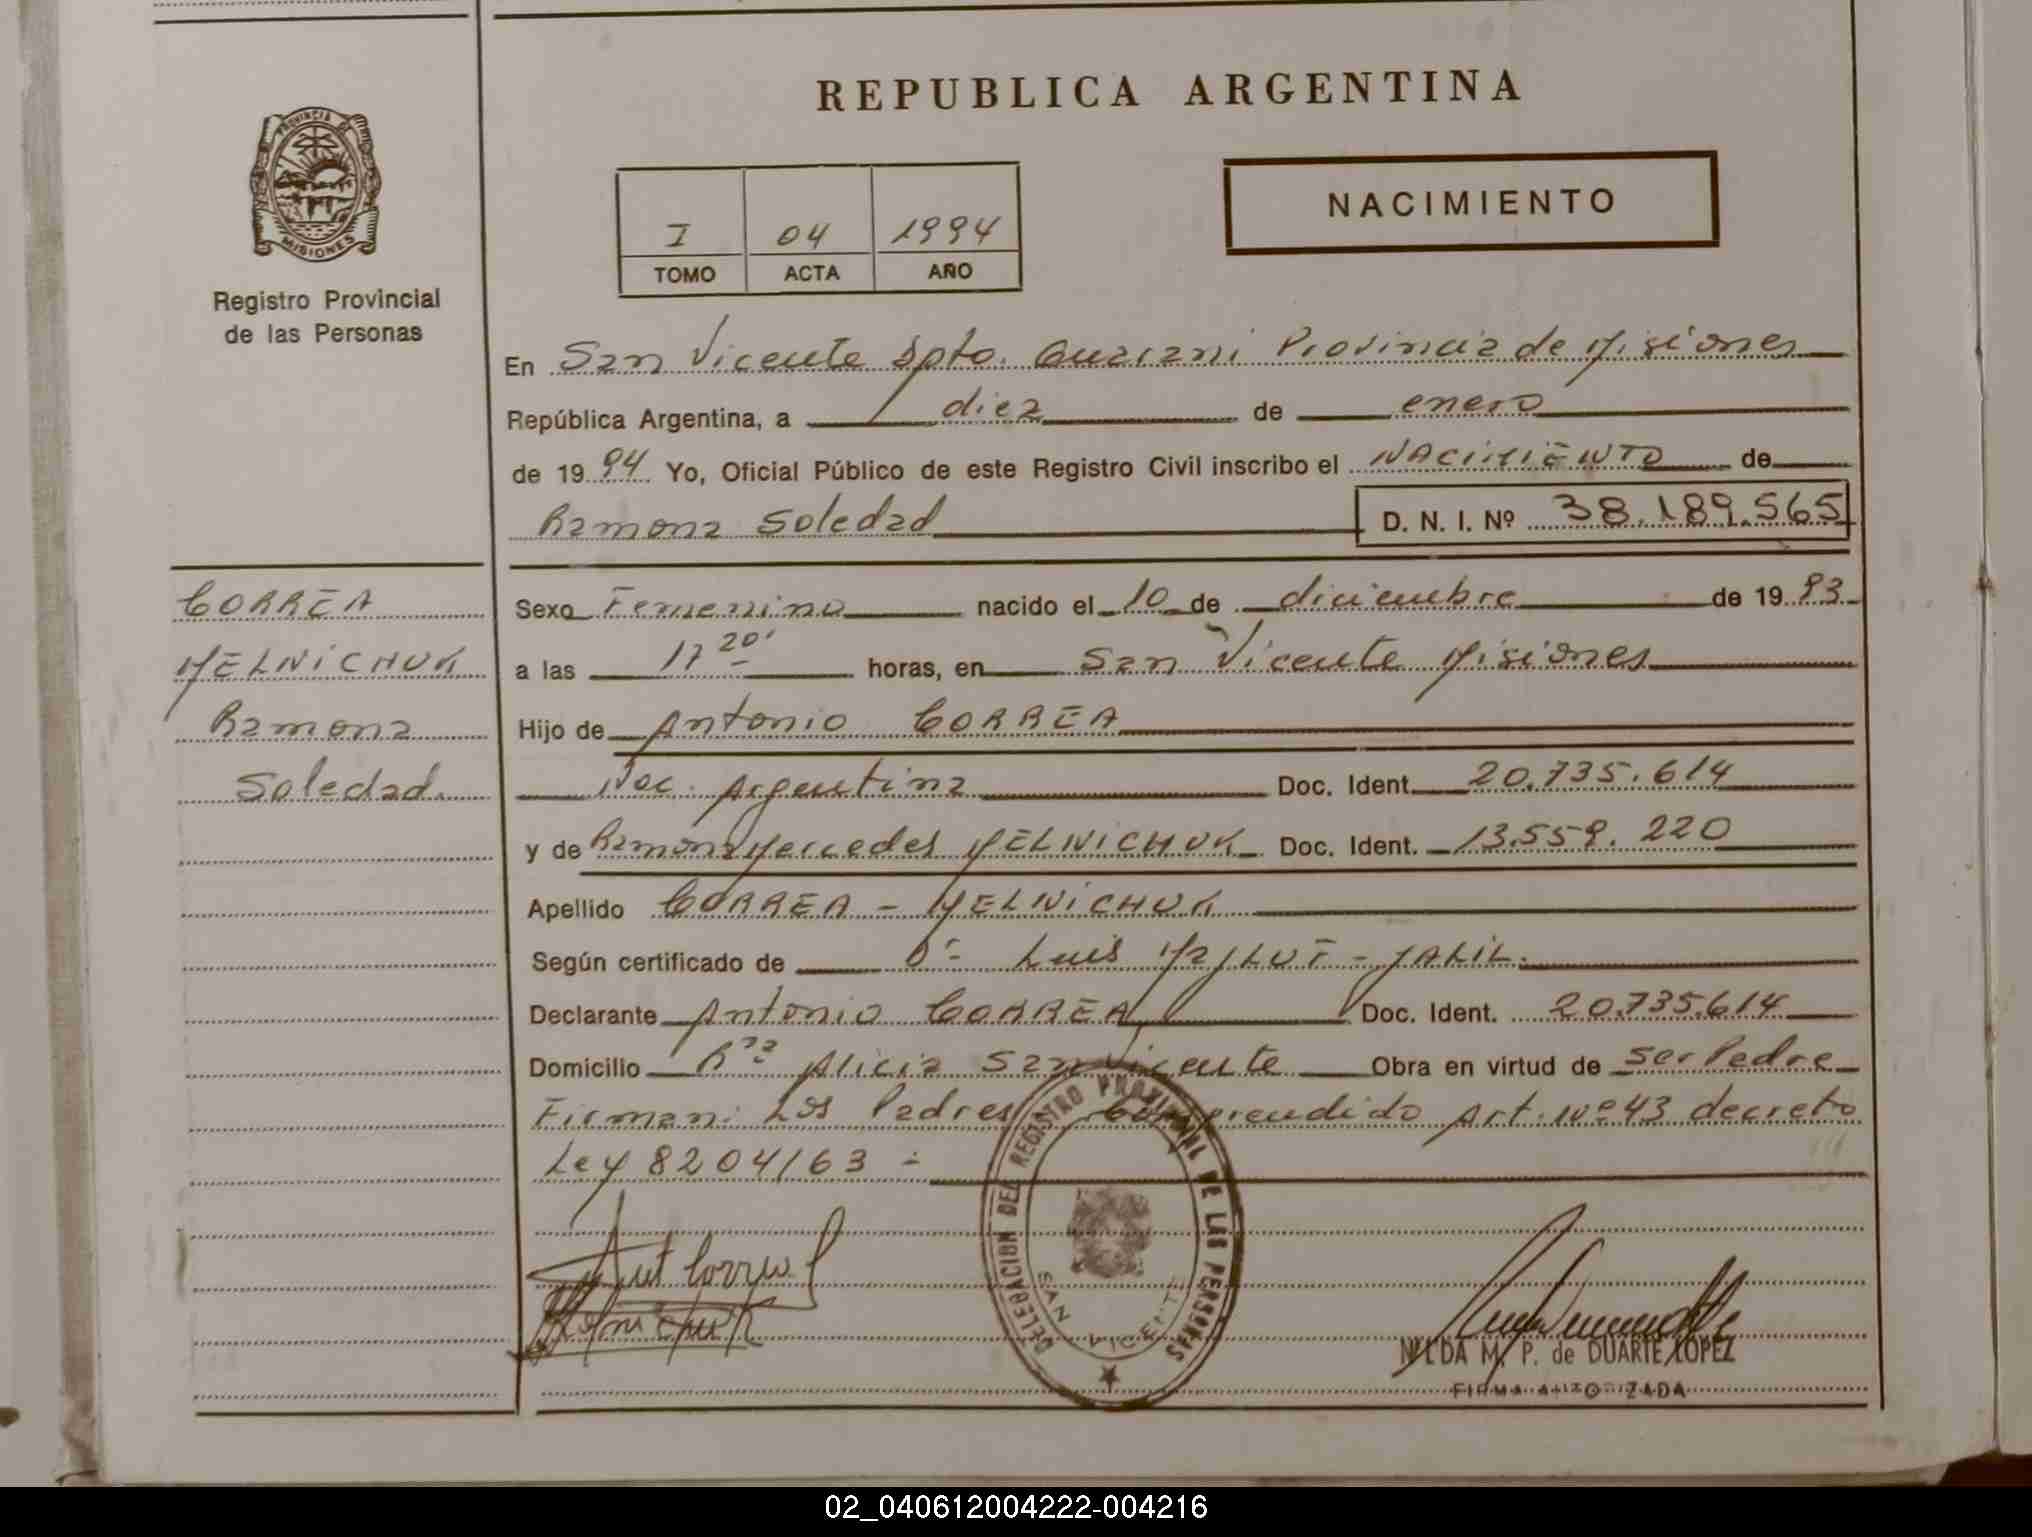 REPUBLICA ARGENTINA
PROVINCIA DE
MISIONES
Registro Provincial
de las Personas
I 04 1994
TOMO ACTA AÑO
NACIMIENTO
En San Vicente Dpto. Guarani Provincia de Misiones
República Argentina, a diez de enero
de 1994 Yo, Oficial Público de este Registro Civil inscribo el NACIMIENTO de
Ramona Soledad D. N. I. Nº 38.189.565
CORREA
MELNICHUK
Ramona
Soledad.
Sexo Femenino nacido el 10 de diciembre de 1993
a las 17 20' horas, en San Vicente Misiones
Hijo de Antonio CORREA
Nac. Argentina Doc. Ident. 20.735.614
y de Ramona Mercedes MELNICHUK Doc. Ident. 13.559.220
Apellido CORREA - MELNICHUK
Según certificado de Dr. Luis
Declarante Antonio CORREA Doc. Ident. 20.735.614
Domicilio Alicia San Vicente Obra en virtud de ser Padre
Firman: Los Padres Comprendido Art. Nº 43 decreto
Ley 8204/63 -
DELEGACION DEL REGISTRO PROVINCIAL DE LAS PERSONAS
SAN VICENTE
NILDA M. P. de DUARTE LOPEZ
FIRMA AUTORIZADA
02_040612004222-004216